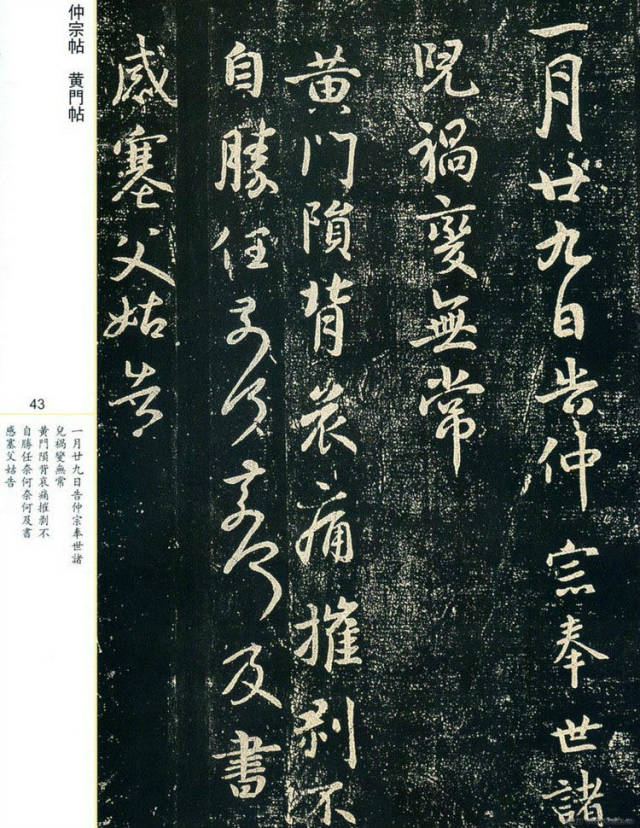 一月廿九日告仲宗奉世諸
兒禍變無常
黃門隕背哀痛摧剥不
自勝任奈何奈何及書
感塞父姑告
仲宗帖　黄門帖
43
一月廿九日告仲宗奉世諸
兒禍變無常
黃門隕背哀痛摧剥不
自勝任奈何奈何及書
感塞父姑告